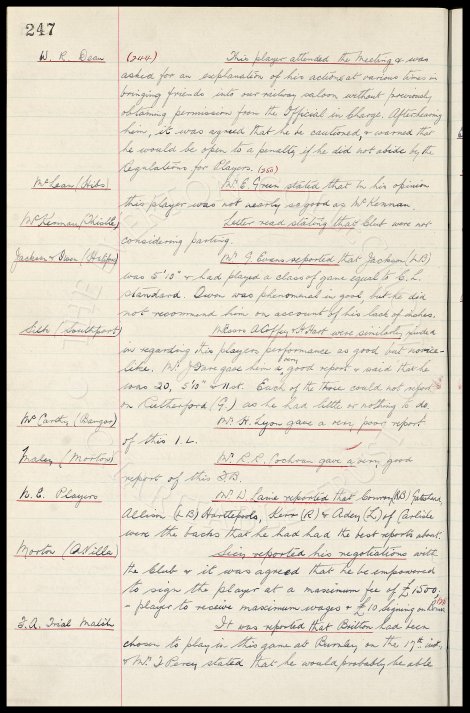 247
W. R. Dean (244) This player attended the Meeting & was
asked for an explanation of his actions at various times in
bringing friends into our railway saloon without previously
obtaining permission from the Official in Charge. After hearing
him, it was agreed that he be cautioned, & warned that
he would be open to a penalty if he did not abide by the
Regulations for Players. (250)
McLean (Hibs) Mr. E. Green stated that in his opinion
this player was not nearly so good as McKennan
McKennan (Thistle) Letter read stating that Club were not
considering parting.
Jackson & Owen (Halifax) Mr. J. Evans reported that Jackson (LB)
was 5'10" & had played a class of game equal to C. L.
standard. Owen was phenomenal in goal, but he did
not recommend him on account of his lack of inches.
Sibb (Southport) Messrs A Coffey & H Hart were similarly minded
in regarding this players performance as good but novice-
like. Mr. J Dare gave him a very good report & said that he
was 20, 5'10" & 11 st. Each of the three could not report
on Rutherford (G.) as he had little or nothing to do.
McCarthy (Bangor) Mr. H. Lyon gave a very poor report
of this I.L.
Maley (Morton) Mr. R. R. Cochran gave a very good
report of this F.B.
N. E. Players Mr. D. Lane reported that Conroy (RB) Gateshead,
Allison (LB) Hartlepools, Kerr (R) & Adey (L) of Carlisle
were the backs that he had had the best reports about.
Morton (A Villa) Secy reported his negotiations with
the Club & it was agreed that he be empowered
to sign the player at a maximum fee of £1500,
- player to receive maximum wages & £10 signing on
F.A. Trial Match It was reported that Britton had been
chosen to play in this game at Burnley, on the 17th inst,
& Mr. J Percy stated that he would probably be able